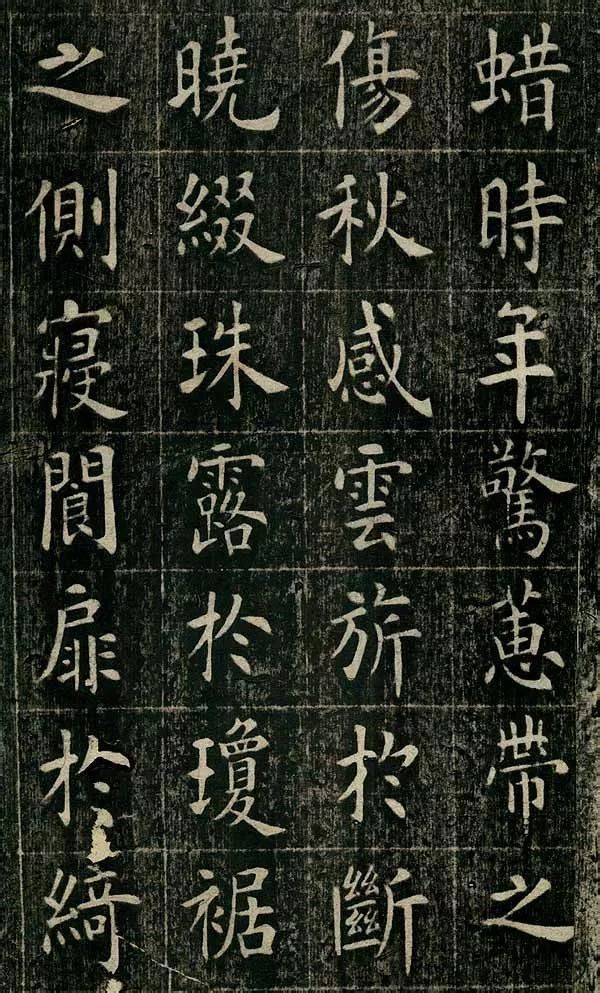 蜡時年驚蕙帶之
傷秋感雲旂於斷
曉綴珠露於瓊裾
之側寢閬扉於綺